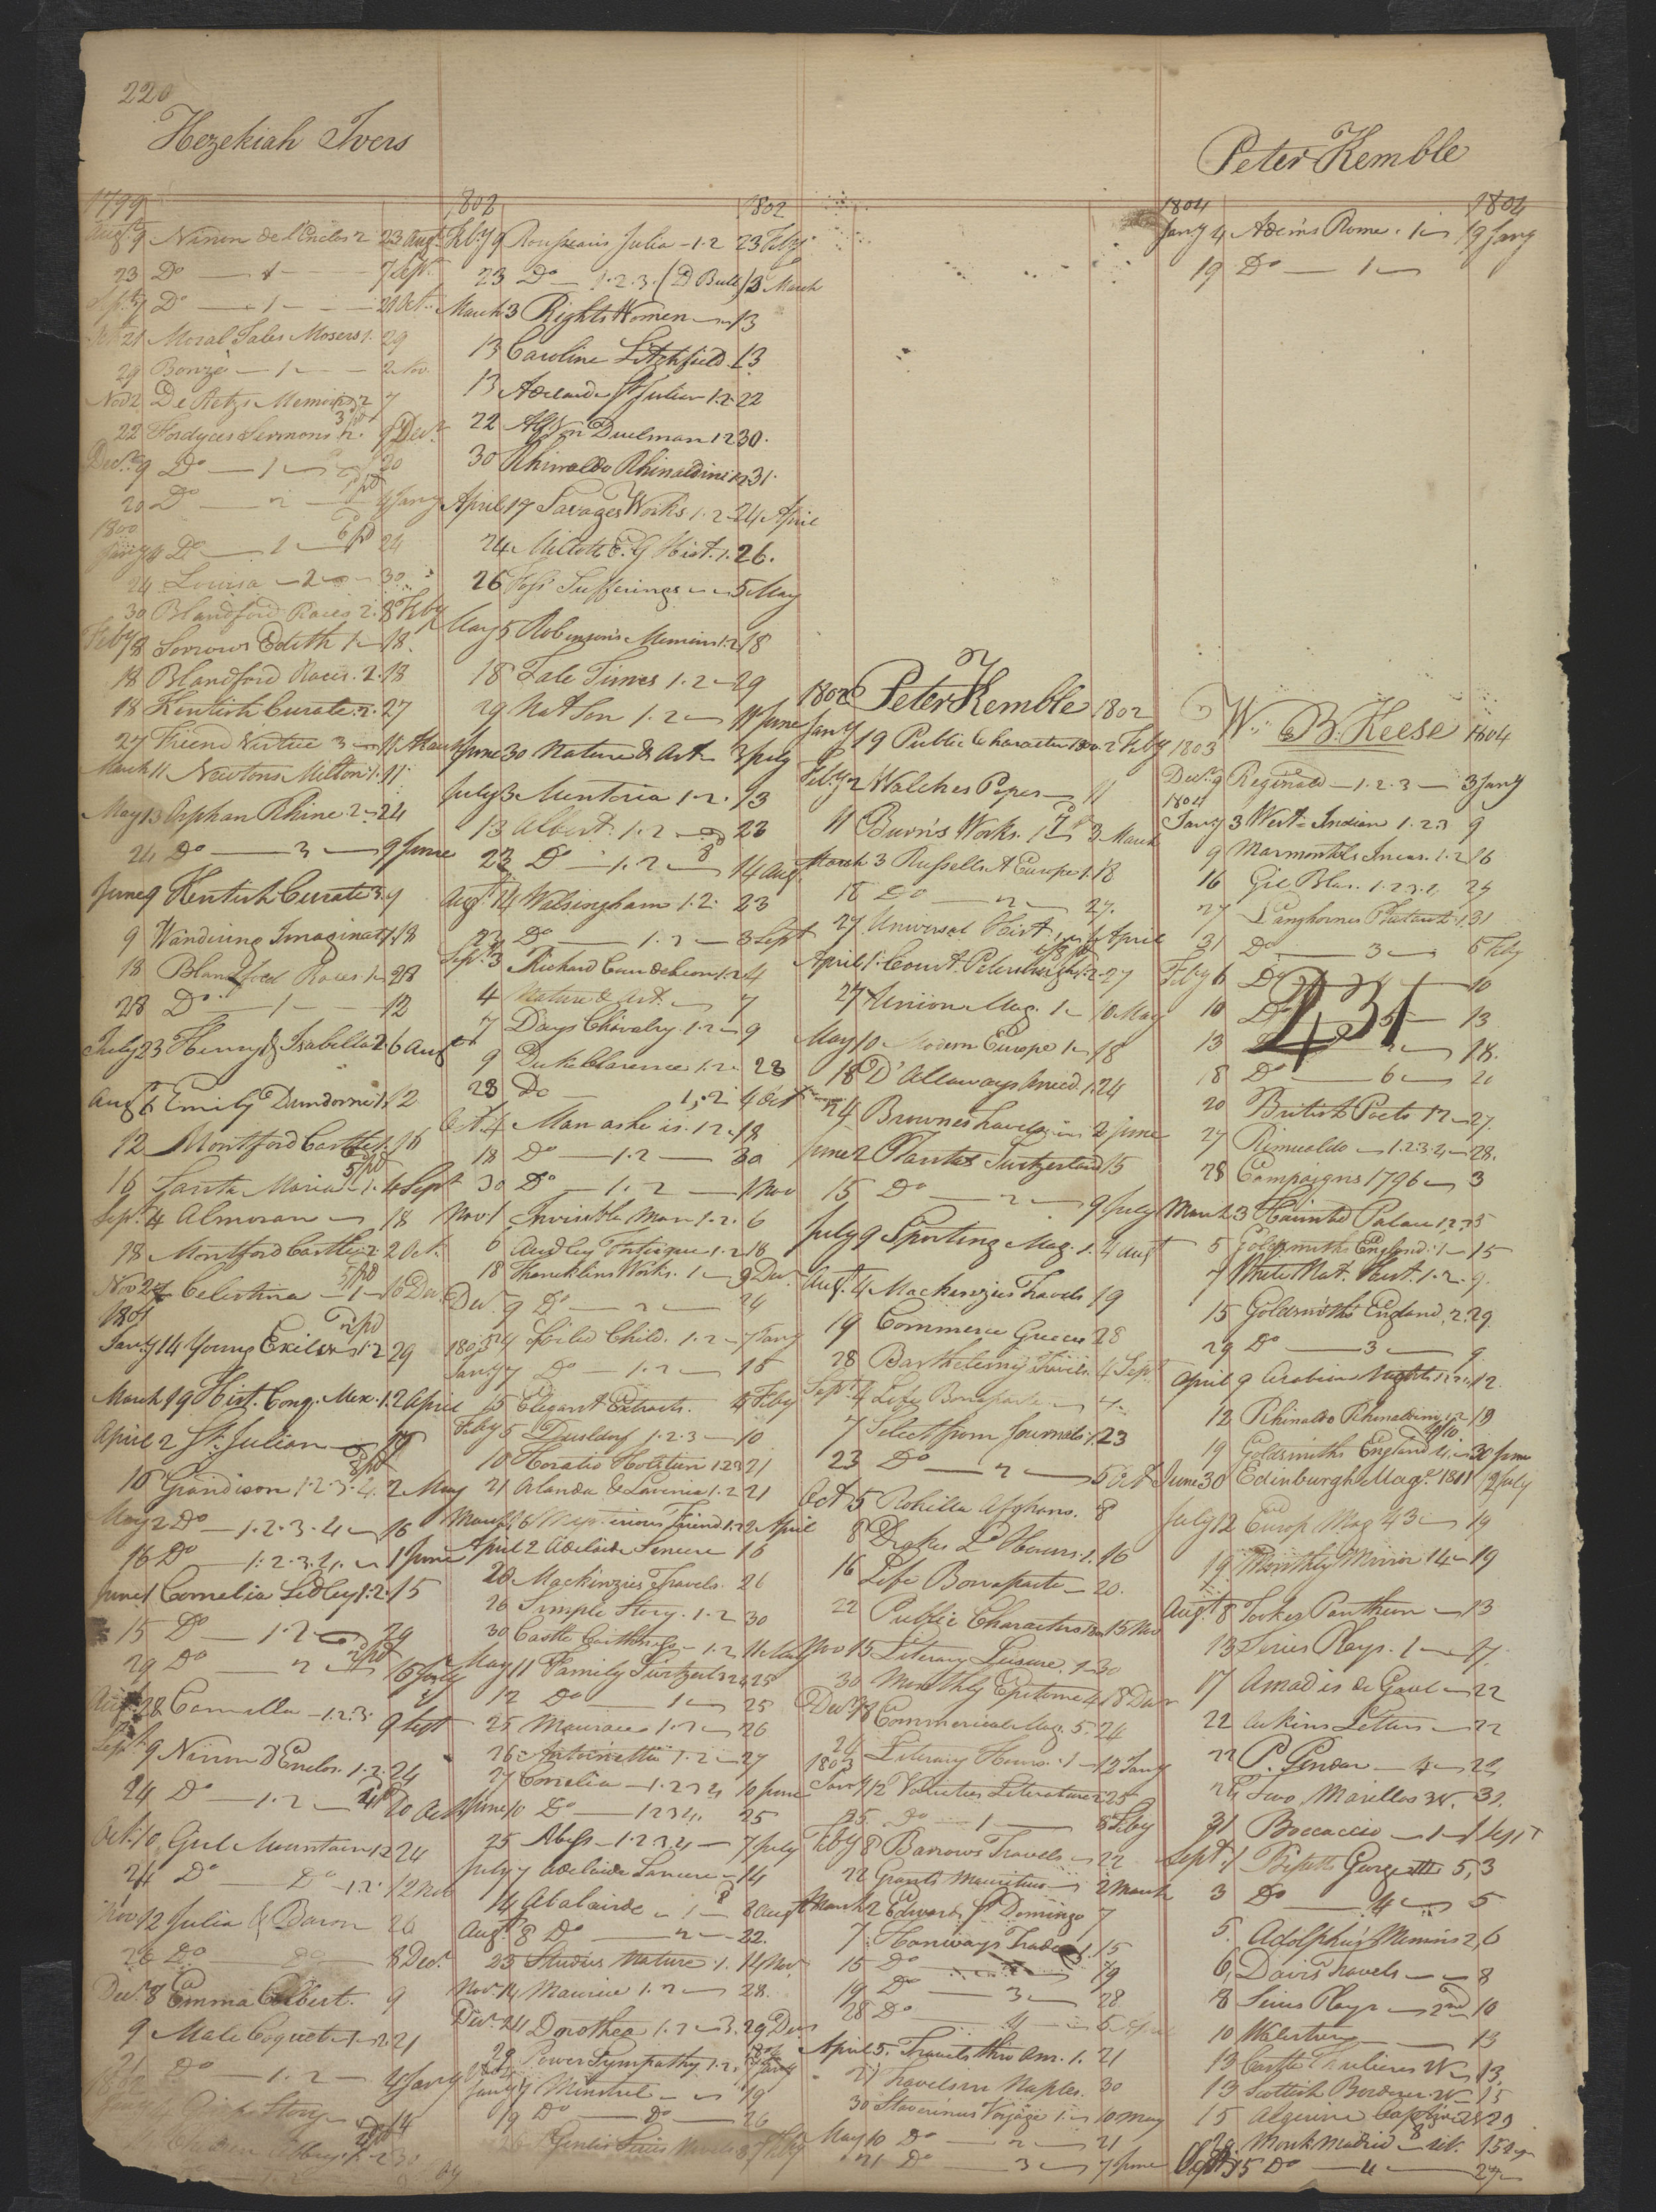 220
Hezekiah Ivers
1799
Augt 9 Ninon de l'Enclos 2 23 Augt
23 Do — 1 — 7 Sept
Sept 7 Do — 1 — 21 Oct
Oct 21 Moral Tales Mosers 1. 29
29 Bonze — 1 — 2 Nov.
Nov 2 De Retz's Memoirs 2 7
22 Fordyces Sermons 9 Decr
Decr 9 Do — 1 — 20
20 Do — 2 — 4 Jany
1800
Jany 4 Do — 2 — 6 pd 24
24 Louisa — 2 — 30
30 Blandford Races 2. 8 Feby
Feby 8 Sorrows Edith 1 — 18.
18 Blandford Races. 2. 18
18 Kentish Curate. 2. 27
27 Friend Virtue 3 — 11 March
March 11 Newtons Milton 1. 11
May 13 Orphan Rhine. 2 — 24
24 Do — 3 — 9 June
June 9 Kentish Curate 3. 9
9 Wandering Imaginatn 1. 18
18 Blandford Races 1 — 28
28 Do — 1 — 12
July 23 Henry & Isabella 2 6 Augt
Augt 6 Emily Dundorne 1. 12
12 Montford Castle 1. 16
16 Santa Maria — 1. 4 Sept
Sept 4 Almoran — 18
18 Montford Castle 2 2 Oct.
Nov 24 Celestina — 1 — 16 Dec.
1801
Jany 14 Young Exiles 1. 2 29
March 19 Hist. Conq. Mex. 1. 2 April
April 2 St. Julian — 16
16 Grandison 1. 2. 3. 4. 2 May
May 2 Do — 1. 2. 3. 4 — 16
16 Do — 1. 2. 3. 4. — 1 June
June 1 Cornelia Sedley 1. 2. 15
15 Do — 1. 2 — 29
29 Do — 2 — 15 July
Augt 28 Camilla — 1. 2. 3. 9 Sept
Sept 9 Ninon D'Enclos. 1. 2. 24
24 Do — 1. 2 — 10 Oct
Oct. 10 Girl Mountain 1. 2 24
24 Do — Do — 1. 2. 12 Nov
Nov 12 Julia & Baron 26
26 Do — Do — 8 Decr
Decr 8 Emma Corbert. 9
9 Male Coquette 1. 2. 21
21 Do — 1. 2 — 4 Jany
1802
Story — 14
Children Abbey 1. 2 30
1802 1802
Feby 9 Rousseau's Julia — 1. 2 23 Feby
23 Do — 1. 2. 3. (D Bull) 3 March
March 3 Rights Women — 13
13 Caroline Litchfield. 13
13 Adelaide St Julian 1. 2 22
22 Alf Von Duelman 1. 2 30.
30 Rhinaldo Rhinaldini 1. 2 31.
April 17 Savages Works 1. 2 — 24 April
24 Millotts E. G Hist. 1. 26.
26 Foss' Sufferings — 5 May
May 5 Robinson's Memoirs 1. 2 18
18 Tale Times 1. 2 — 29
29 Nat Son 1. 2 — 11 June
June 30 Nature & Art — 3 July
July 3 Mentoria 1. 2. 13
13 Albert. 1. 2 — 23
23 Do — 1. 2 — 14 Aug.
Augt 14 Walsingham 1. 2. 23
23 Do — 1. 2 — 3 Sept
Sept 3 Richard Cœur de Leon 1. 2 4
4 Nature & Art. — 7
7 Days Chivalry. 1. 2 — 9
9 Duke Clarence 1. 2. 23
23 Do — 1. 2 4 Oct
Oct. 4 Man as he is. 1. 2. 18
18 Do — 1. 2 — 30
30 Do — 1. 2 — 1 Nov
Nov. 1 Invisible Man 1. 2. 6
6 Audley Fortescue 1. 2 18
18 Francklins Works. 1 — 9 Dec.
Dec. 9 Do — 2 — 24
24 Foiled Child. 1. 2 — 7 Jany
1803
Jany 7 Do — 1. 2 — 15
15 Elegant Extracts. 5 Feby
Feby 5 Dusseldorf 1. 2. 3 — 10
10 Horatio Holstein 1. 2. 3 21
21 Alanda & Lavinia 1. 2 21
March 16 Mysterious Friend 1. 2 2 April
April 2 Adelaide Sencere 16
20 Mackinzies Travels. 26
26 Simple Story. 1. 2 30
30 Castle Caithness — 1. 2 11 May
May 11 Family Switzerld 3. 4 25
12 Do — 1 — 25
25 Mauraice 1. 2 — 26
26 Antoinette 1. 2 — 27
27 Cornelia — 1. 2 3 4 10 June
June 10 Do — 1 2 3 4. 25
25 Abess — 1. 2. 3. 4 — 7 July
July 7 Adelaide Sancere — 14
14 Abalairde — 1 — 8 Augt
Augt 8 Do — 2 — 22.
23 Studies Nature. 1. 14 Nov.
Nov. 14 Maurice 1. 2 — 28.
Decr 24 Dorothea 1. 2 — 3. 29 Dec.
29 Power Sympathy 1. 2. 7 Jany
1804
Jany 7 Minstrel — 19
19 Do — Do — 26
Feby
1802 Peter Kemble 1802
Jany 19 Public Characters 1800. 2 Feby
Feby 2 Walches Popes — 11
11 Burns Works. 1 — 3 March
March 3 Russells A Europe 1. 18
18 Do — 2 — 27.
27 Universal Hist. April
April 1. Court Petersburgh 1. 2. 27
27 Union Mag. 1 — 10 May
May 10 Modern Europe 1 — 18
18 D'Alloways Anecd. 1. 24
24 Brownes Travels — 2 June
June 2 Plantas Switzerland 15
15 Do — 2 — 9 July
July 9 Sporting Mag. 1. 4 Augt
Augt. 4 Mackenzies Travels 19
19 Commerce Greece 28
28 Barthelemy Travels. 4 Sept.
Sept. 4 Life Bonaparte — 7
7 Select from Journals 1. 23
23 Do — 2 — 5 Oct
Oct 5 Rohilla Afghans. 8
8 Drakes L. Hours. 1. 16
16 Life Bonaparte — 20.
22 Public Characters 15 Nov
Nov 15 Literary Leisure. 1 — 30
30 Monthly Epitome 4 18 Decr
Decr 18 Commercial Mag. 5. 24
24 Literary Hours. 1 — 12 Jany
1803
Jany 12 Varieties Literature 2. 25
25 Do — 1 — 8 Feby
Feby 8 Barrows Travels — 22
22 Grants Mauritius — 2 March
March 2 Edwards St Domingo 7
7 Hanways Trade 1. 15
15 Do — 2 — 19
19 Do — 3 — 28
28 Do — 4 — 5 April
April 5. Travels thro Am. 1. 21
21 Travels in Naples. 30
30 Stavorinus Voyage 1. — 10 May
May 10 Do — 2 — 21
21 Do — 3 — 7 June
Peter Kemble
1804 1804
Jany 4 Adams Rome. 1 — 19 Jany
19 Do — 1 —
W. B. Keese 1804
1803
Decr 9 Reginald — 1. 2. 3 — 3 Jany
1804
Jany 3 West Indian 1. 2. 3 9
9 Marmontels Incas. 1. 2 16
16 Gil Blas. 1. 2. 3. 4 27
27 Langhornes Plutarch 1. 31
31 Do — 3 — 6 Feby
Feby 6 Do — 4 — 10
10 Do — 5 — 13
431
13 Do — 18.
18 Do — 6 — 20
20 British Poets 12 — 27.
27 Rimualdo — 1. 2 3. 4 — 28.
28 Campaigns 1796 — 3
March 3 Haunted Palace 1. 2. 3 5
5 Goldsmiths England. 1 — 15
7 White Nat. Hist. 1. 2. 9.
15 Goldsmiths England, 2. 29.
29 Do — 3 — 9
April 9 Arabian Nights 1. 2. 12.
12 Rhinaldo Rhinaldini 1. 2 — 19
19 Goldsmiths England 4. — 30 June
June 30 Edinburgh Mage. 1801 12 July
July 12 Europ Mag 43 — 19
19 Monthly Mirror 14 — 19
Augt 8 Tookes Pantheon — 13
13 Siries Plays. 1 — 17.
17 Amadis de Gaul — 22
22 Aikins Letters — 22
22 P. Pindar — 4 — 22
24 Two Marillos 31.
31 Boccaccio — 1 — 1 Sept
Sept. 1 Bissetts George III 5, 3
3 Do — 4 — 5
5. Adolphus' Memoirs 2, 6
6, Davis Travels — 8
8 Siries Plays — 2nd 10
10 Waterburg — 13
13 Castle 13.
13 Scottish Borderer 15
15 Algerine Captive 23
Monk Madrid — 15
15 Do — 4 — 27